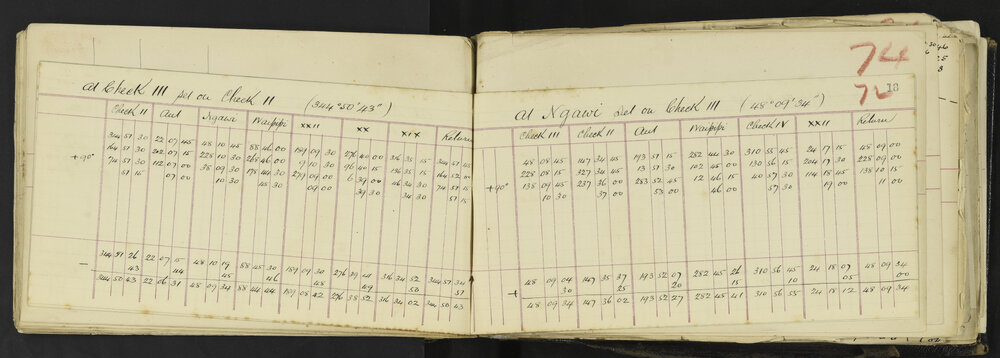 74
72 18
At Check III set on Check II (344° 50' 43")
Check II Aut Ngawi Waipipi XXII XX XIX Return
344 51 30 22 07 45 48 10 45 88 46 00 189 09 30 276 40 00 316 35 15 344 57 45
164 51 30 202 07 15 228 10 30 268 46 00 9 10 30 96 40 15 136 35 15 164 52 00
+90° 74 51 30 112 07 00 138 09 30 178 44 30 279 09 00 6 39 00 46 34 30 74 57 15
51 15 07 00 10 30 45 30 09 00 39 30 34 30 57 15
344 51 26 22 07 15 48 10 19 88 45 30 189 09 30 276 39 41 316 34 52 344 57 34
- 43 44 45 46 48 49 50 51
344 50 43 22 06 31 48 09 34 88 44 44 189 08 42 276 38 52 316 34 02 344 50 43
At Ngawi Set on Check III (48° 09' 34")
Check III Check II Aut Waipipi Check IV XXII Return
48 08 45 147 34 45 193 51 15 282 44 30 310 55 45 24 17 15 48 09 00
228 08 15 327 34 45 13 51 30 102 45 00 130 56 15 204 17 30 228 09 00
+90° 138 09 45 237 36 00 283 52 45 12 46 15 40 57 30 114 18 45 138 10 15
10 30 37 00 53 00 57 30 19 00 11 00
48 09 04 147 35 37 193 52 07 282 45 26 310 56 45 24 18 07 48 09 34
+ 30 25 20 15 10 05 00
48 09 34 147 36 02 193 52 27 282 45 41 310 56 55 24 18 12 48 09 34